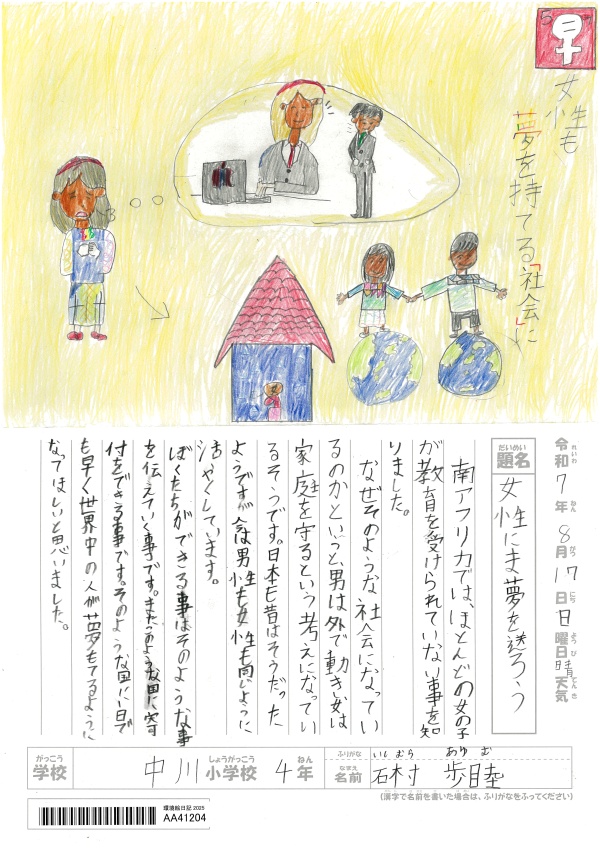 5
女性も
夢を持てる「社会」に
令和7年8月17日日曜日晴天気
れいわ ねん がつ にち ようび てんき
だいめい
題名
女性にま夢を送ろう
南アフリカでは、ほとんどの女の子
が教育を受けられていない事を知
りました。
なぜそのような社会になってい
るのかというと、男は外で動き女は
家庭を守るという考えになってい
るそうです。日本も昔はそうだった
ようですが今は男性も女性も同じように
活やくしています。
ぼくたちができる事はそのような事
を伝えていく事です。またこのような国に寄
付をできる事です。そのような国に1日で
も早く世界中の人が夢もてるように
なってほしいと思いました。
がっこう
学校
中川
しょうがっこう
小学校
4
ねん
年
ふりがな
いしむら あゆむ
なまえ
名前
石村 歩睦
(漢字で名前を書いた場合は、ふりがなをふってください)
環境絵日記 2025
AA41204